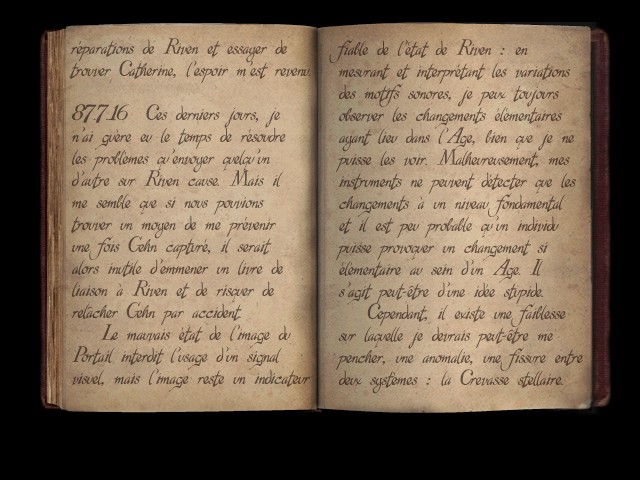 réparations de Riven et essayer de
trouver Catherine, l'espoir m'est revenu.
87.7.16 Ces derniers jours, je
n'ai guère eu le temps de résoudre
les problèmes qu'envoyer quelqu'un
d'autre sur Riven cause. Mais il
me semble que si nous pouvions
trouver un moyen de me prévenir
une fois Gehn capturé, il serait
alors inutile d'emmener un livre de
liaison à Riven et de risquer de
relâcher Gehn par accident.
Le mauvais état de l'image du
Portail interdit l'usage d'un signal
visuel, mais l'image reste un indicateur
fiable de l'état de Riven : en
mesurant et interprétant les variations
des motifs sonores, je peux toujours
observer les changements élémentaires
ayant lieu dans l'Age, bien que je ne
puisse les voir. Malheureusement, mes
instruments ne peuvent détecter que les
changements à un niveau fondamental
et il est peu probable qu'un individu
puisse provoquer un changement si
élémentaire au sein d'un Age. Il
s'agit peut-être d'une idée stupide.
Cependant, il existe une faiblesse
sur laquelle je devrais peut-être me
pencher, une anomalie, une fissure entre
deux systèmes : la Crevasse stellaire.